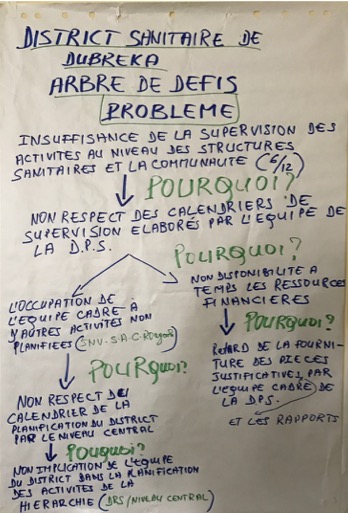 DISTRICT SANITAIRE DE
DUBREKA
ARBRE DE DEFIS
PROBLEME
INSUFFISANCE DE LA SUPERVISION DES
ACTIVITES AU NIVEAU DES STRUCTURES
SANITAIRES ET LA COMMUNAUTE (6/12)
POURQUOI?
NON RESPECT DES CALENDRIERS DE
SUPERVISION ELABORÉS PAR L'EQUIPE DE
LA D.P.S.
POURQUOI?
L'OCCUPATION DE
L'EQUIPE CADRE À
D'AUTRES ACTIVITÉS NON
PLANIFIEES
POURQUOI?
NON RESPECT DE
CALENDRIER DE LA
PLANIFICATION DU DISTRICT
PAR LE NIVEAU CENTRAL
POURQUOI?
NON IMPLICATION DE L'EQUIPE
DU DISTRICT DANS LA PLANIFICATION
DES ACTIVITES DE LA
HIERARCHIE (DRS/NIVEAU CENTRAL)
NON DISPONIBILITE A
TEMPS LES RESSOURCES
FINANCIERES
POURQUOI?
RETARD DE LA FOURNI-
TURE DES PIECES
JUSTIFICATIVES PAR
L'EQUIPE CADRE DE
LA DPS.
ET LES RAPPORTS